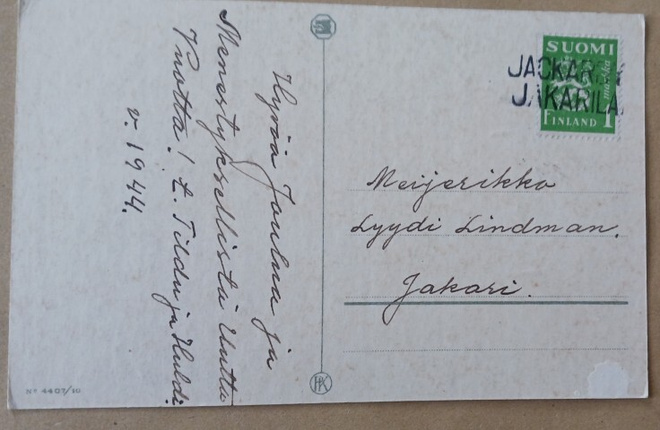 Hyvää Joulua ja
Menestyksellistä Uutta
Vuotta! t. Tildu ja Huldi.
v. 1944.
SUOMI
markka
FINLAND 1
JACKAR
JAKARILA
Meijerikkö
Lyydi Lindman.
Jakari.
No 4407/